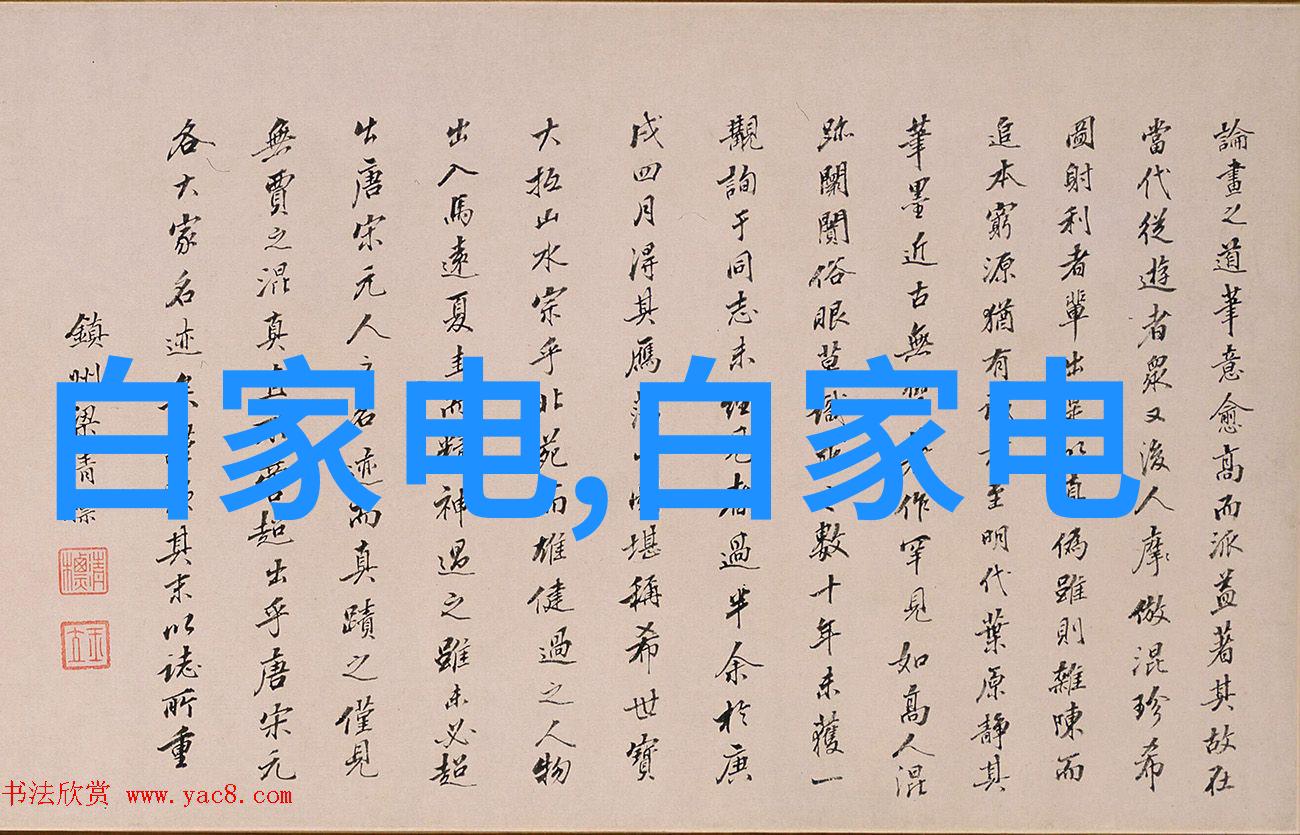 論畫之道筆意愈高而派益著其故在
當代從遊者衆又後人摩倣混珍希
圖射利者輩出真偽雖則雜陳而
追本窮源猶有至明代葉原静其
筆墨近古無作罕見如高人混
跡闤闠俗眼莫識數十年未獲一
觀詢于同志未經見者過半余於庚
戌四月得其鴈蕩堪稱希世寶
大抵山水宗乎北苑而雄健過之人物
出入馬遠夏圭而精神過之雖未必超
出唐宋元人之名迹而真蹟之僅見
無賈之混真且超出乎唐宋元
各大家名迹矣其末以誌所重
鎮州梁清標
清標
玉立
白家电,白家电
书法欣赏 www.yac8.com